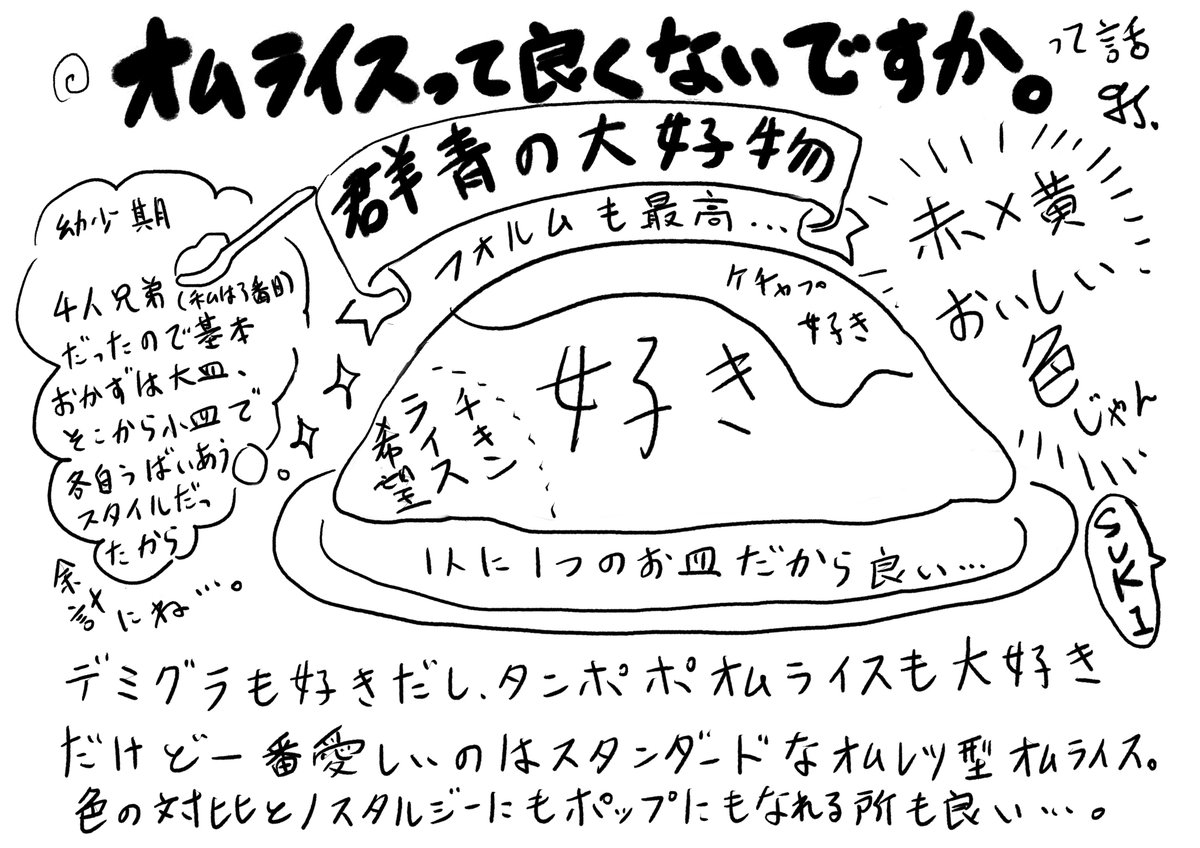 オムライスって良くないですか。
って話
群青の大好物
フォルムも最高…
幼少期
4人兄弟(私は3番目)
だったので基本
おかずは大皿、
そこから小皿で
各自うばいあう
スタイルだっ
たから
余計にね…。
赤×黄
おいしい
色じゃん
SUKI
ケチャップ
好き
好き
チキン
ライス
希望
1人に1つのお皿だから良い…
デミグラも好きだし、タンポポオムライスも大好き
だけど一番愛しいのはスタンダードなオムレツ型オムライス。
色の対比とノスタルジーにもポップにもなれる所も良い…。